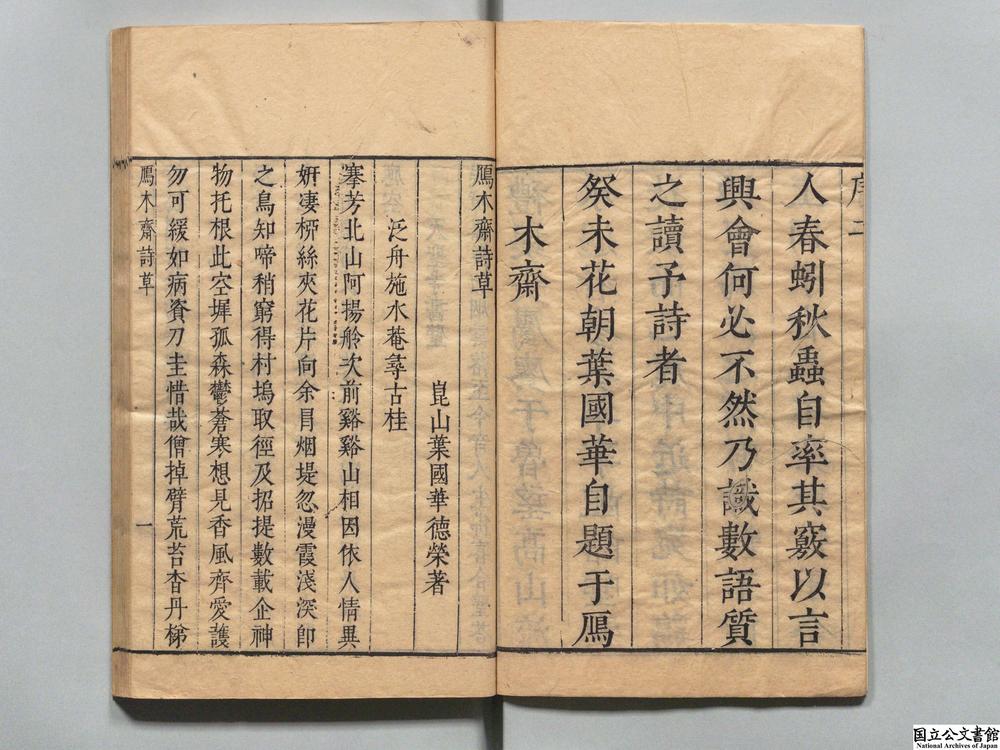 序二
人春蚓秋蟲自率其竅以言
興會何必不然乃識數語質
之讀予詩者
癸未花朝葉國華自題于鴈
木齋
鴈木齋詩草
崑山葉國華德榮著
泛舟施水菴尋古桂
搴芳北山阿揚舲次前谿谿山相因依人情異
妍凄栁絲夾花片向余㒵烟堤忽漫霞淺深卽
之鳥知啼稍窮得村塢取徑及招提數載企神
物托根此容墀孤森鬱蒼寒想見香風齊愛護
勿可緩如病資刀圭惜哉僧掉臂荒苔杳丹梯
鴈木齋詩草
一
国立公文書館
National Archives of Japan